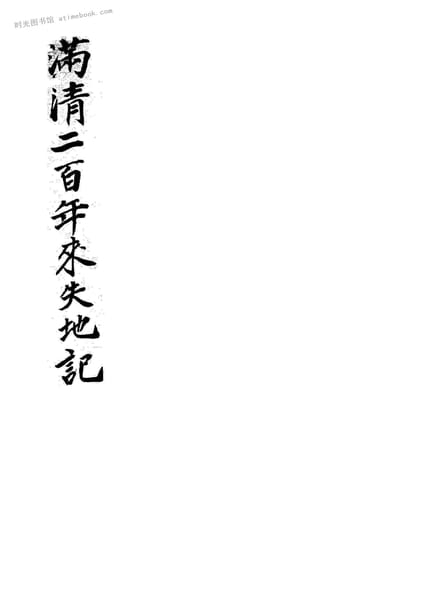 时光图书馆 atimebook.com
滿清二百年來失地記